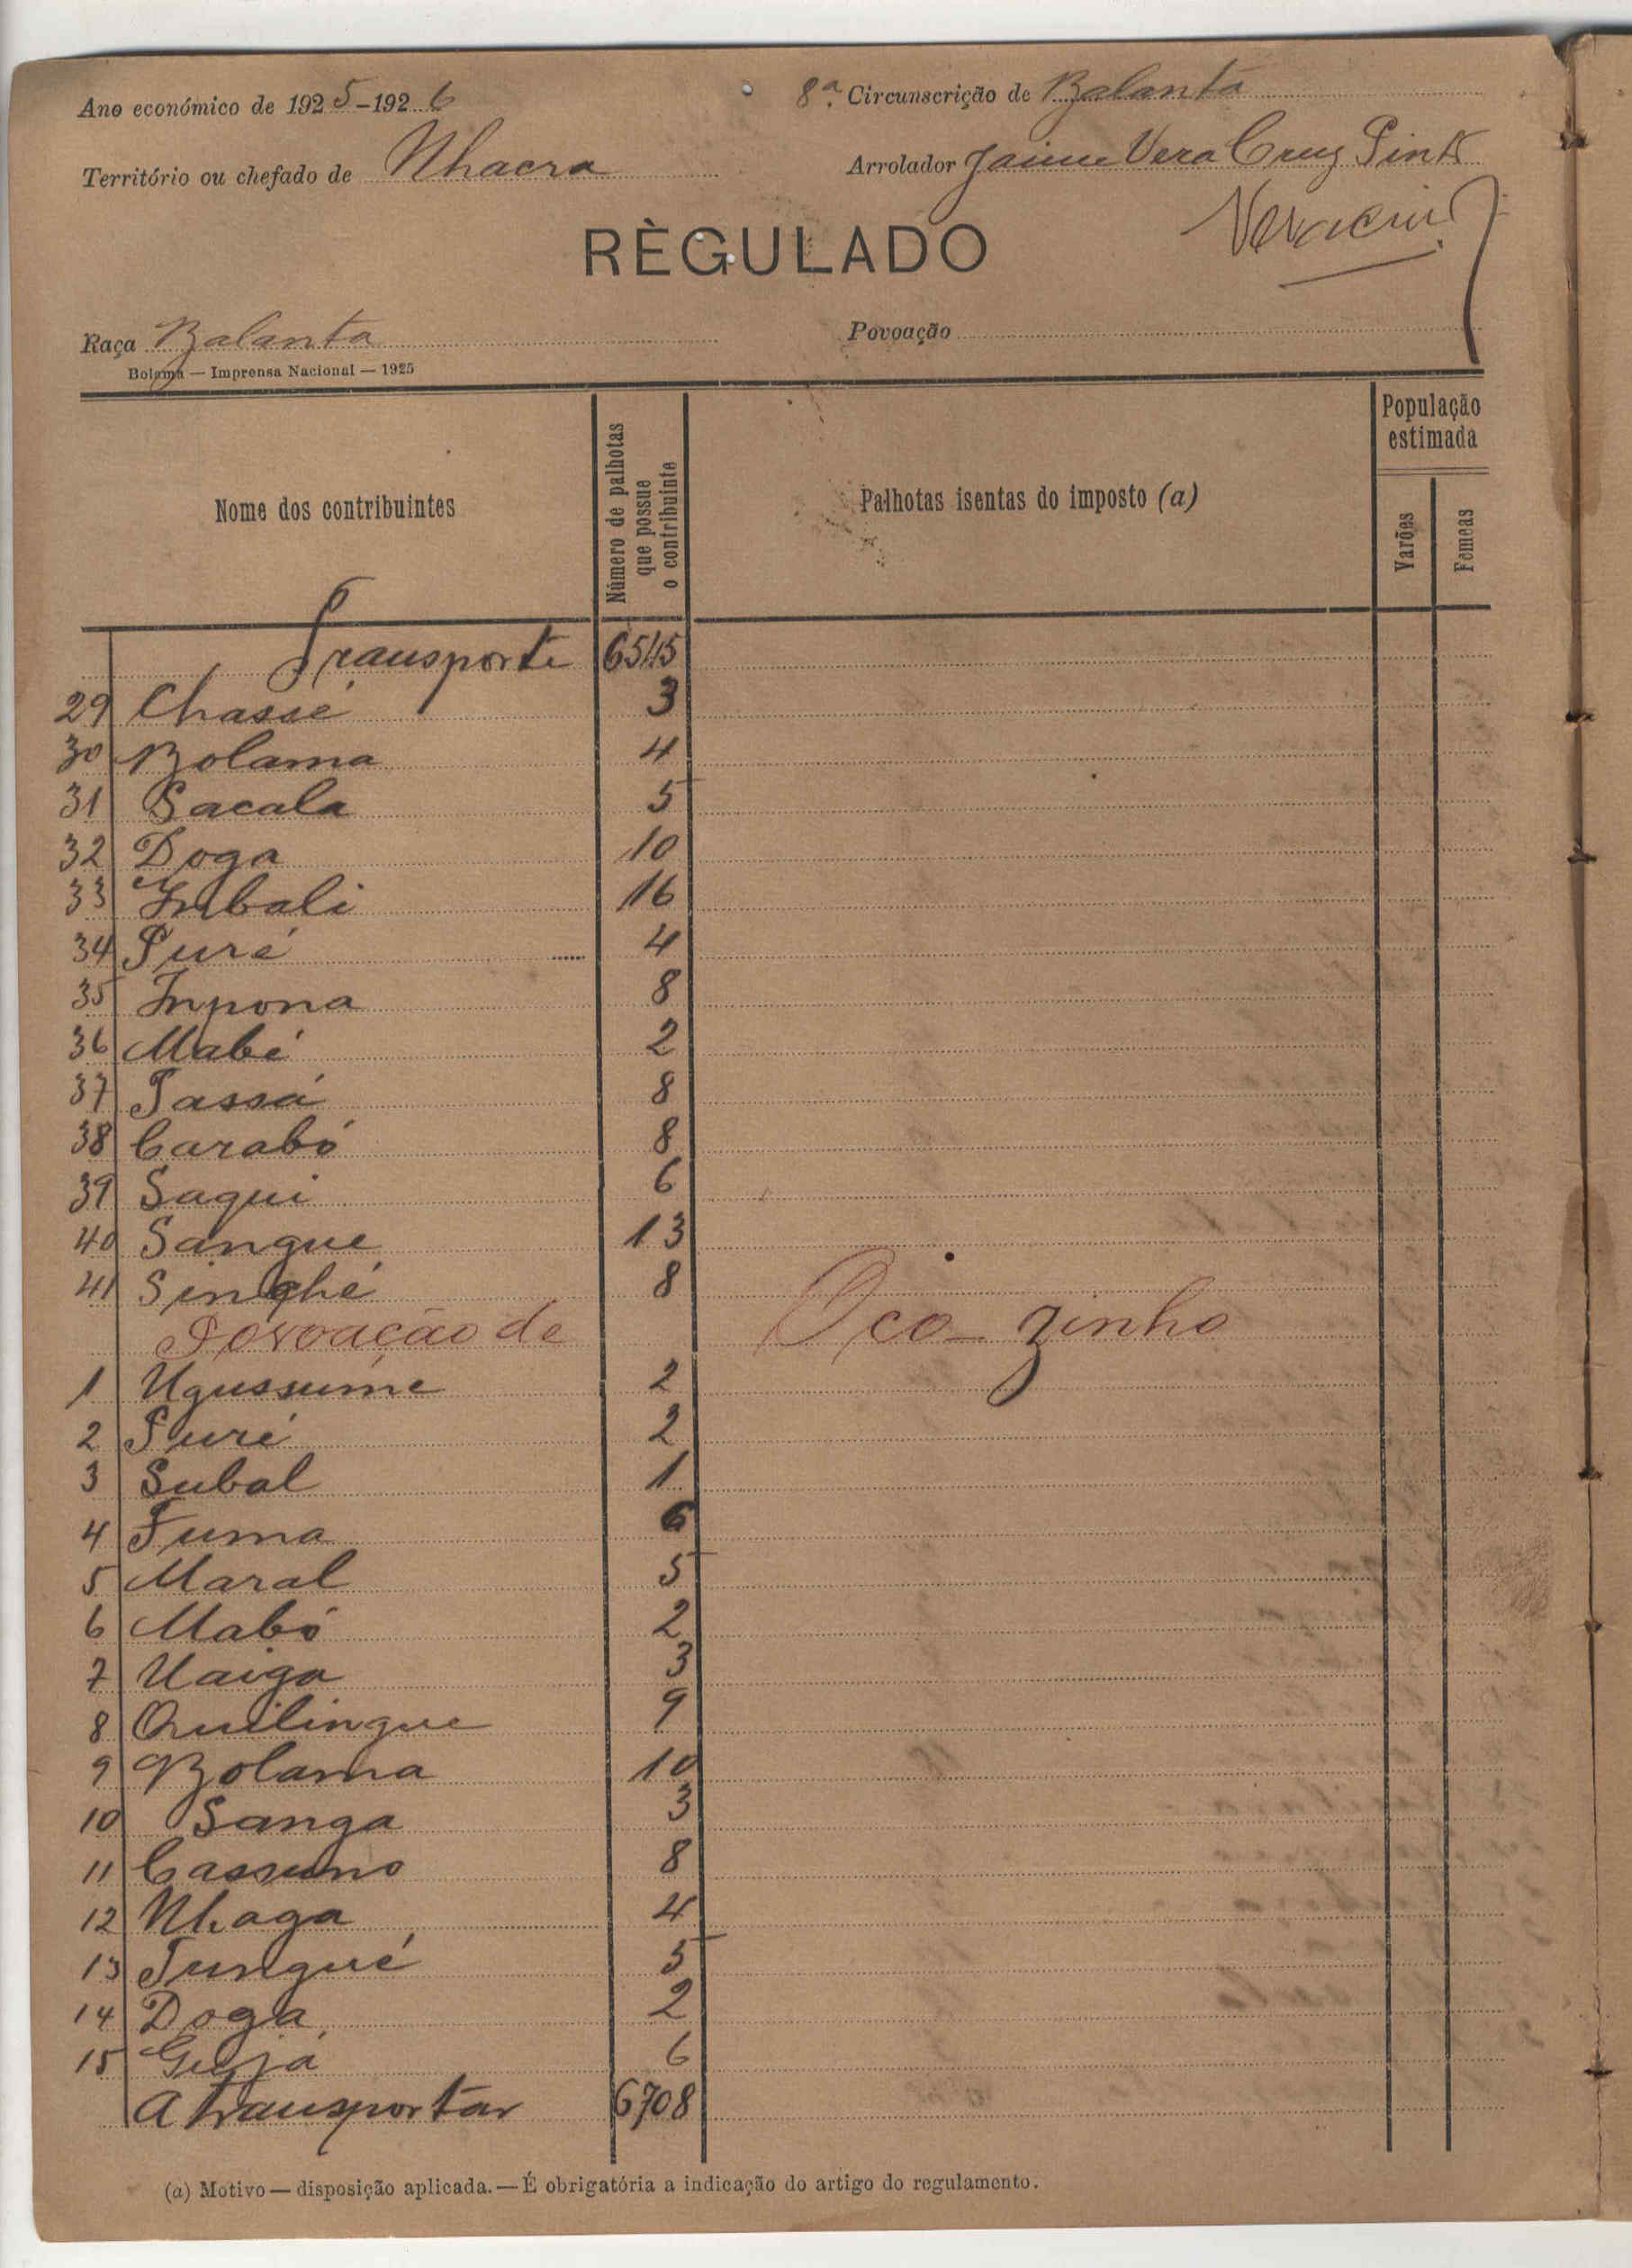 Ano económico de 1925-1926
8ª Circunscrição de Balanta
Território ou chefado de Nhacra
Arrolador Jaime Vera Cruz Pinto
RÈGULADO
Raça Balanta
Povoação
Bolama — Imprensa Nacional — 1925
Nome dos contribuintes
Número de palhotas que possue o contribuinte
Palhotas isentas do imposto (a)
População estimada
Varões
Femeas
Transporte 6545
29 Chassé 3
30 Bolama 4
31 Sacala 5
32 Doga 10
33 Imbali 16
34 Puré 4
35 Inpona 8
36 Mabé 2
37 Tassá 8
38 Carabó 8
39 Saqui 6
40 Sangue 13
41 Singhé 8
Povoação de Oco-zinho
1 Ugussume 2
2 Puré 2
3 Subal 1
4 Fuma 6
5 Maral 5
6 Mabó 2
7 Uaiga 3
8 Quilingue 9
9 Bolama 10
10 Sanga 3
11 Cassumo 8
12 Nhaga 4
13 Tungué 5
14 Doga 2
15 Gujá 6
A transportar 6708
(a) Motivo — disposição aplicada. — É obrigatória a indicação do artigo do regulamento.